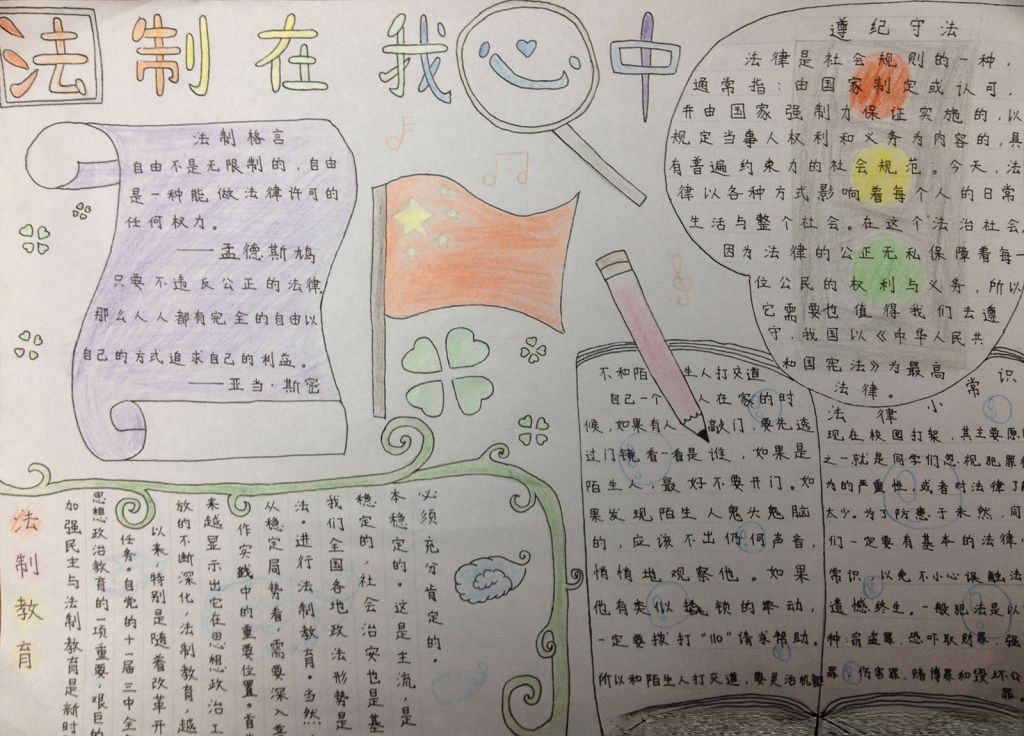 法制在我心中
法制格言
自由不是无限制的，自由
是一种能做法律许可的
任何权力。
——孟德斯鸠
只要不违反公正的法律
那么人人都有完全的自由以
自己的方式追求自己的利益。
——亚当·斯密
遵纪守法
法律是社会规则的一种，
通常指：由国家制定或认可，
并由国家强制力保证实施的，以
规定当事人权利和义务为内容的，具
有普遍约束力的社会规范。今天，法
律以各种方式影响着每个人的日常
生活与整个社会。在这个法治社会
因为法律的公正无私保障着每一
位公民的权利与义务，所以
它需要也值得我们去遵
守，我国以《中华人民共
和国宪法》为最高
法律。
不和陌生人打交道
自己一个人在家的时
候，如果有人敲门，要先透
过门镜看一看是谁，如果是
陌生人，最好不要开门。如
果发现陌生人鬼头鬼脑
的，应该不出任何声音，
悄悄地观察他。如果
他有类似撬锁的举动，
一定要拨打“110”请求帮助。
所以和陌生人打交道，要灵活机智
法律小常识
现在校园打架，其主要原
之一就是同学们忽视犯罪
为的严重性，或者对法律了
太少。为了防患于未然，同
们一定要有基本的法律
常识，以免不小心误触法
遗憾终生。一般犯法是以
种：窃盗罪，恐吓取财罪，强
罪，伤害罪，赌博罪和毁坏公
罪。
法制教育
必须充分肯定的。
本稳定的。这是主流，是
稳定的，社会治安也是基
我们全国各地政法形势是
法。进行法制教育。当然，
从稳定局势看，需要深入普
作实践中的重要位置。首
来越显示出它在思想政治工
放的不断深化，法制教育，越
以来，特别是随着改革开
任务。自党的十一届三中全
思想政治教育的一项重要，艰巨的
加强民主与法制教育是新时